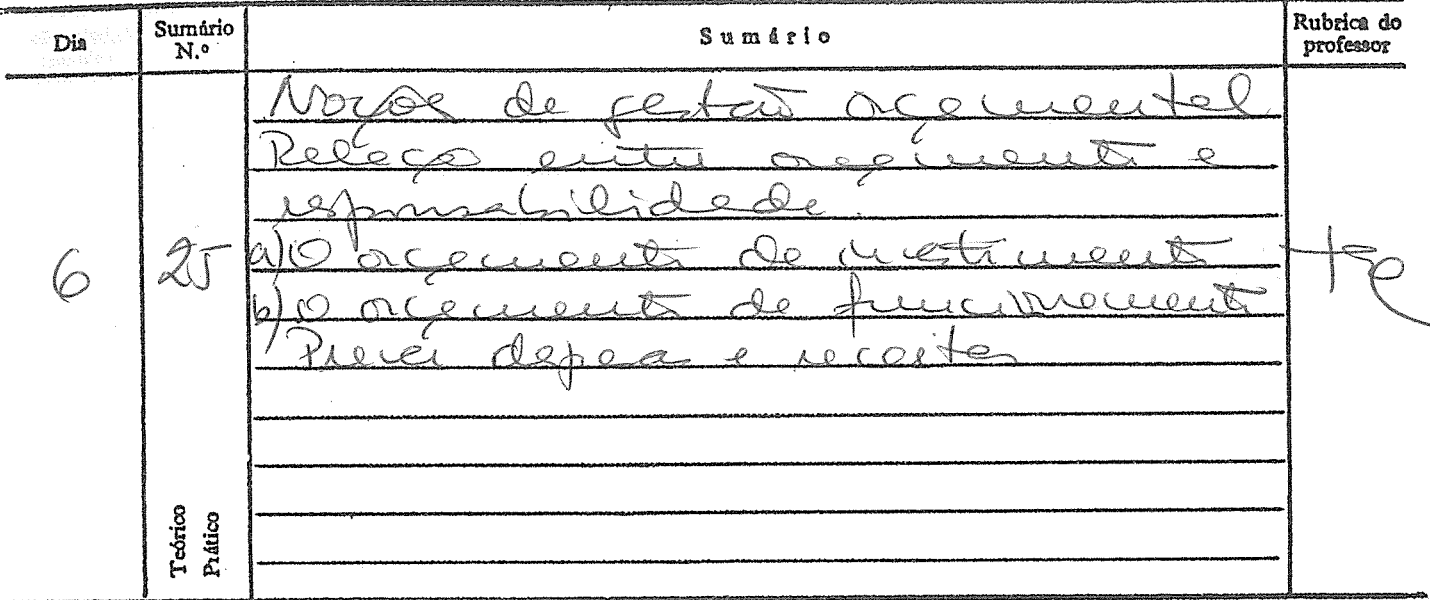 Dia
Sumário N.º
Sumário
Rubrica do professor
Noções de gestão orçamental
Relação entre orçamento e
responsabilidade.
6 25 a) O orçamento de investimento
b) O orçamento de funcionamento
Prever despesas e receitas
Teórico
Prático